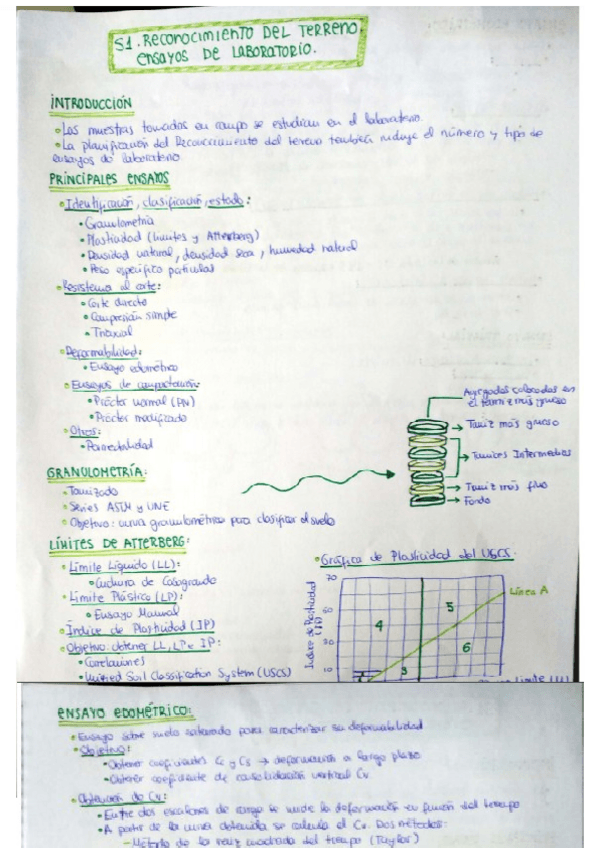 S1. RECONOCIMIENTO DEL TERRENO.
ENSAYOS DE LABORATORIO.
INTRODUCCIÓN
• Las muestras tomadas en campo se estudian en el laboratorio.
• La planificación del Reconocimiento del terreno también incluye el número y tipo de
ensayos de laboratorio
PRINCIPALES ENSAYOS
• Identificación, clasificación, estado:
• Granulometría
• Plasticidad (límites y Atterberg)
• Densidad natural, densidad seca, humedad natural
• Peso específico partículas
• Resistencia al corte:
• Corte directo
• Compresión simple
• Triaxial
• Deformabilidad:
• Ensayo edométrico
• Ensayos de compactación:
• Próctor normal (PN)
• Próctor modificado
• Otros:
• Permeabilidad
Agregados colocados en
el tamiz más grueso
Tamiz más grueso
Tamices Intermedios
Tamiz más fino
Fondo
GRANULOMETRÍA:
• Tamizado
• Series ASTM y UNE
• Objetivo: curva granulométrica para clasificar el suelo
LÍMITES DE ATTERBERG:
• Límite Líquido (LL):
• Cuchara de Casagrande
• Límite Plástico (LP):
• Ensayo Manual
• Índice de Plasticidad (IP)
• Objetivo: obtener LL, LP e IP:
• Correlaciones
• Unified Soil Classification System (USCS)
• Gráfica de Plasticidad del USCS.
Índice de Plasticidad
(IP)
70
50
30
10
Línea A
4
5
3
6
ENSAYO EDOMÉTRICO:
• Ensayo sobre suelo saturado para caracterizar su deformabilidad
• Objetivo:
• Obtener coeficientes Cc y Cs → deformación a largo plazo
• Obtener coeficiente de consolidación vertical Cv
• Obtención de Cv:
• Entre dos escalones de carga se mide la deformación en función del tiempo
• A partir de la curva obtenida se calcula el Cv. Dos métodos:
- Método de la raíz cuadrada del tiempo (Taylor)